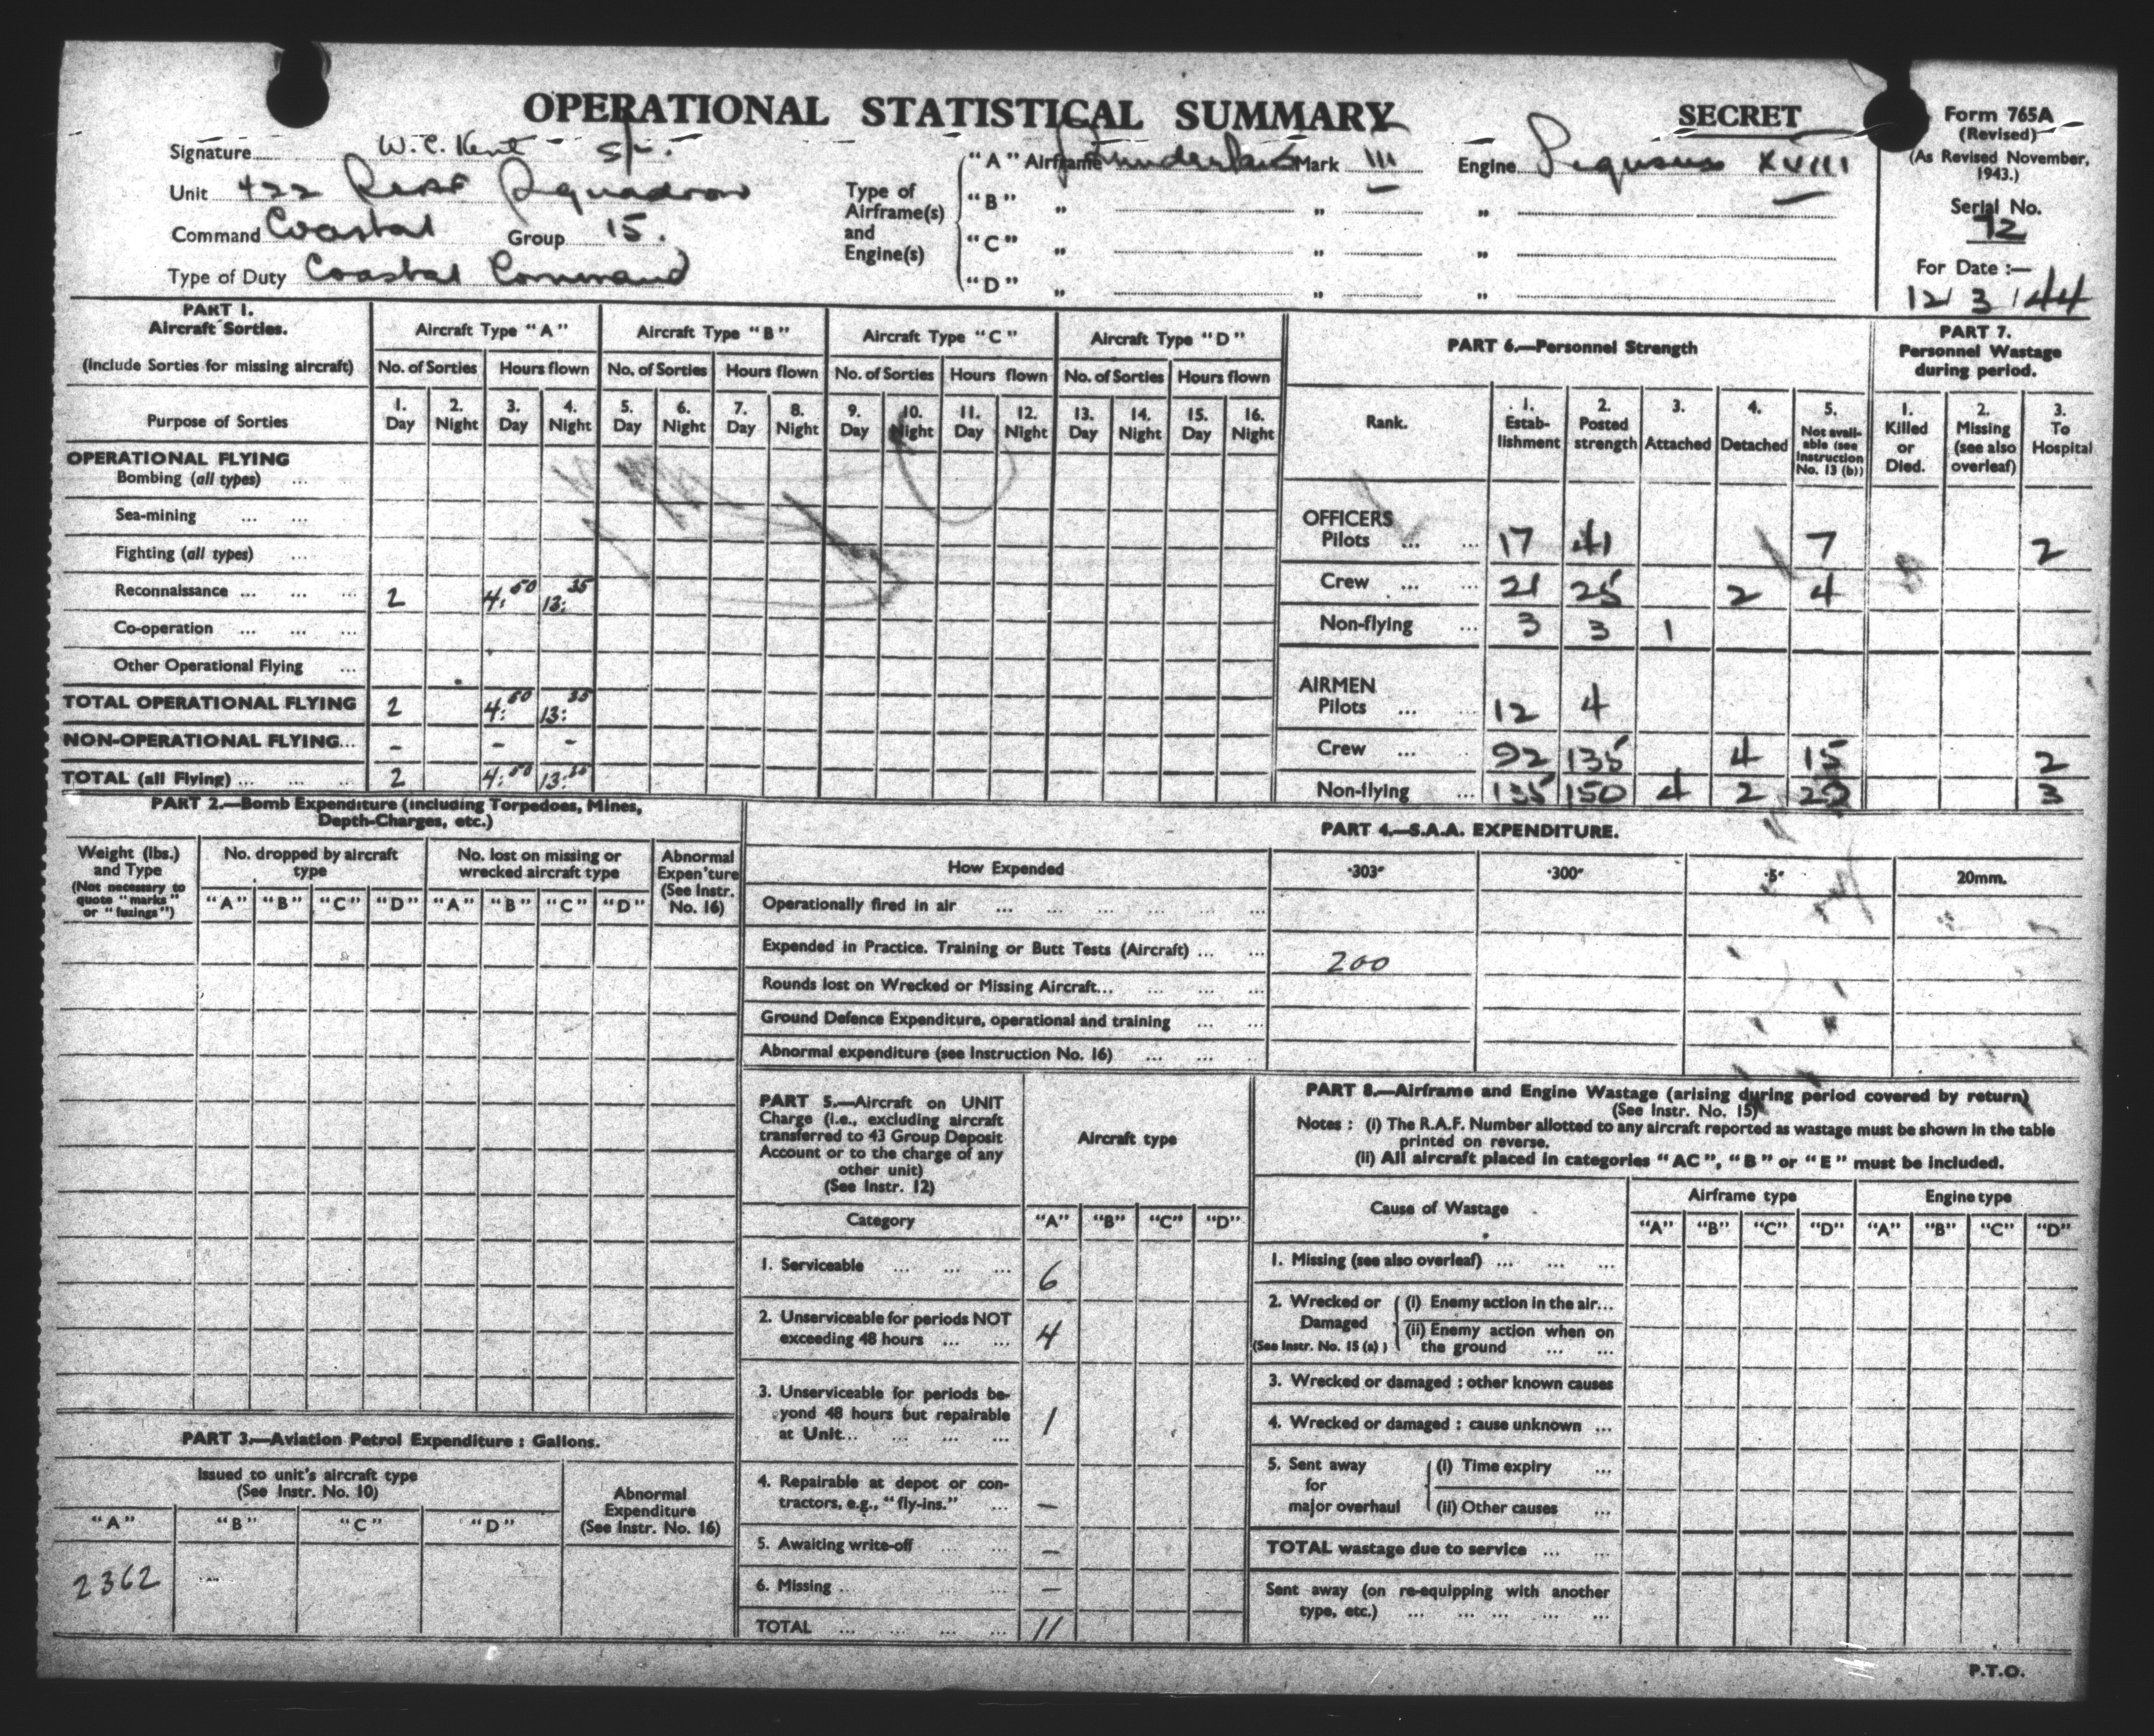 OPERATIONAL STATISTICAL SUMMARY
SECRET
Form 765A
(Revised)
(As Revised November,
1943.)
Serial No.
72
For Date :—
12/3/44
Signature W. C. Kent
Unit 422 RCAF Squadron
Command Coastal Group 15.
Type of Duty Coastal Command
Type of
Airframe(s)
and
Engine(s)
"A" Airframe Sunderland Mark III Engine Pegasus XVIII
"B" „ „ „
"C" „ „ „
"D" „ „ „
PART 1.
Aircraft Sorties.
(Include Sorties for missing aircraft)
Purpose of Sorties
Aircraft Type "A" Aircraft Type "B" Aircraft Type "C" Aircraft Type "D"
No. of Sorties Hours flown No. of Sorties Hours flown No. of Sorties Hours flown No. of Sorties Hours flown
1. 2. 3. 4. 5. 6. 7. 8. 9. 10. 11. 12. 13. 14. 15. 16.
Day Night Day Night Day Night Day Night Day Night Day Night Day Night Day Night
OPERATIONAL FLYING
Bombing (all types) ...
Sea-mining ... ...
Fighting (all types) ...
Reconnaissance ... ... ... 2 4:50 13:35
Co-operation ... ... ...
Other Operational Flying ...
TOTAL OPERATIONAL FLYING 2 4:50 13:35
NON-OPERATIONAL FLYING... - - -
TOTAL (all Flying) ... ... ... 2 4:50 13:35
PART 6.—Personnel Strength
Rank.
1.
Estab-
lishment
2.
Posted
strength
3.
Attached
4.
Detached
5.
Not avail-
able (see
Instruction
No. 13 (b))
PART 7.
Personnel Wastage
during period.
1.
Killed
or
Died.
2.
Missing
(see also
overleaf)
3.
To
Hospital
OFFICERS
Pilots ... ... 17 41 7 2
Crew ... ... 21 25 2 4
Non-flying ... 3 3 1
AIRMEN
Pilots ... ... 12 4
Crew ... ... 92 135 4 15 2
Non-flying ... 135 150 4 2 3
PART 2.—Bomb Expenditure (including Torpedoes, Mines,
Depth-Charges, etc.)
Weight (lbs.)
and Type
(Not necessary to
quote "marks"
or "fuzings")
No. dropped by aircraft
type
No. lost on missing or
wrecked aircraft type
Abnormal
Expen'ture
(See Instr.
No. 16)
"A" "B" "C" "D" "A" "B" "C" "D"
PART 4.—S.A.A. EXPENDITURE.
How Expended ·303" ·300" ·5" 20mm.
Operationally fired in air ... ... ... ... ... ...
Expended in Practice. Training or Butt Tests (Aircraft) ... ... 200
Rounds lost on Wrecked or Missing Aircraft... ... ... ...
Ground Defence Expenditure, operational and training ... ...
Abnormal expenditure (see Instruction No. 16) ... ... ...
PART 3.—Aviation Petrol Expenditure : Gallons.
Issued to unit's aircraft type
(See Instr. No. 10)
Abnormal
Expenditure
(See Instr. No. 16)
"A" "B" "C" "D"
2362
PART 5.—Aircraft on UNIT
Charge (i.e., excluding aircraft
transferred to 43 Group Deposit
Account or to the charge of any
other unit)
(See Instr. 12)
Aircraft type
Category "A" "B" "C" "D"
1. Serviceable ... ... ... 6
2. Unserviceable for periods NOT
exceeding 48 hours ... ... 4
3. Unserviceable for periods be-
yond 48 hours but repairable
at Unit... ... ... ... 1
4. Repairable at depot or con-
tractors, e.g., "fly-ins." ... —
5. Awaiting write-off ... ... —
6. Missing ... ... ... —
TOTAL ... ... ... ... 11
PART 8.—Airframe and Engine Wastage (arising during period covered by return)
(See Instr. No. 15)
Notes : (i) The R.A.F. Number allotted to any aircraft reported as wastage must be shown in the table
printed on reverse.
(ii) All aircraft placed in categories "AC", "B" or "E" must be included.
Cause of Wastage
Airframe type Engine type
"A" "B" "C" "D" "A" "B" "C" "D"
1. Missing (see also overleaf) ... ... ...
2. Wrecked or
Damaged
(See Instr. No. 15 (a))
(i) Enemy action in the air...
(ii) Enemy action when on
the ground ... ...
3. Wrecked or damaged : other known causes
4. Wrecked or damaged : cause unknown ...
5. Sent away
for
major overhaul
(i) Time expiry ...
(ii) Other causes ...
TOTAL wastage due to service ... ...
Sent away (on re-equipping with another
type, etc.) ... ... ... ... ...
P.T.O.